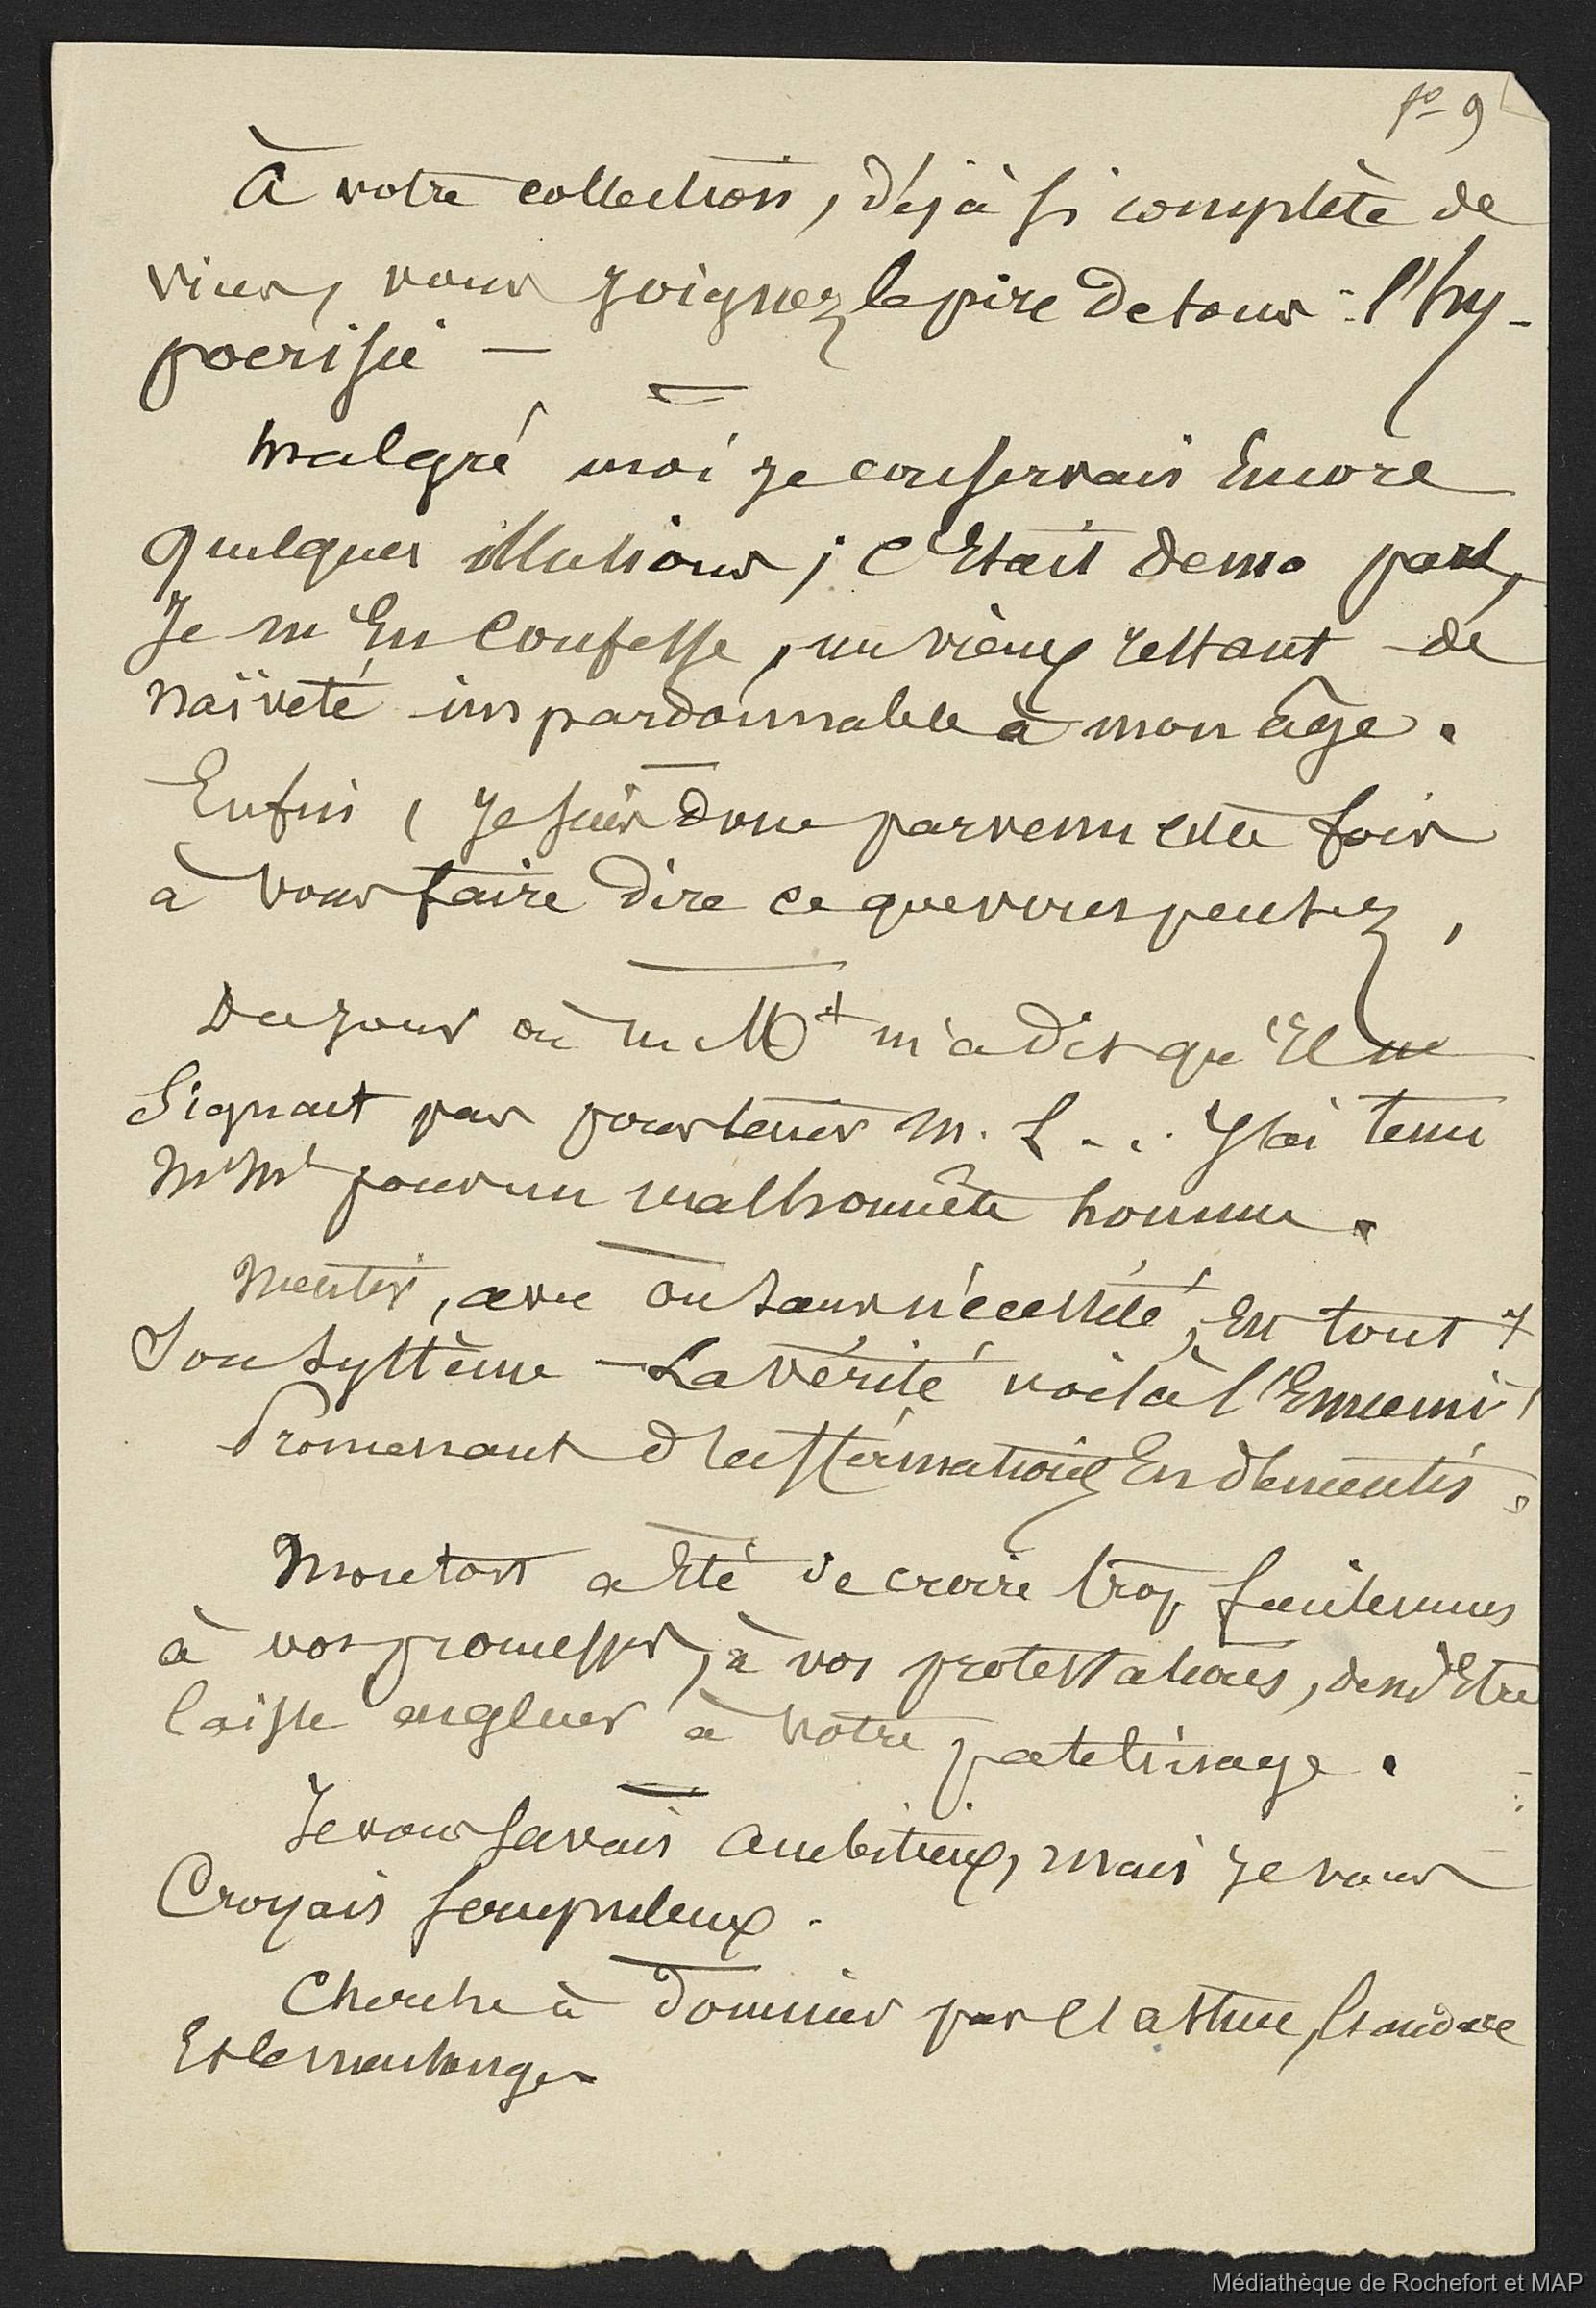 fo 9
À votre collection, déjà si complète de
vices, vous joignez le pire de tous : l'hy-
pocrisie —
Malgré moi je conservais encore
quelques illusions ; c'était de ma part,
Je m'en confesse, un vieux restant de
naïveté impardonnable à mon âge.
Enfin, je suis donc parvenu cette fois
à vous faire dire ce que vous pensez,
Du jour où m'a dit qu'il ne
Signait pas pour tenir M. L... J'ai tenu
Mr Mt pour un malhonnête homme.
Mentir, avec ou sans nécessité, est tout
Son système — La vérité voilà l'Ennemi !
Promenant d'affirmations En démentis.
Mon tort a été de croire trop
à vos promesses, à vos protestations, de m'être
laissé engluer à votre patelinage.
Je vous savais ambitieux, mais je vous
Croyais scrupuleux.
Cherche à dominer par l'astuce, l'audace
Et le mensonge
Médiathèque de Rochefort et MAP